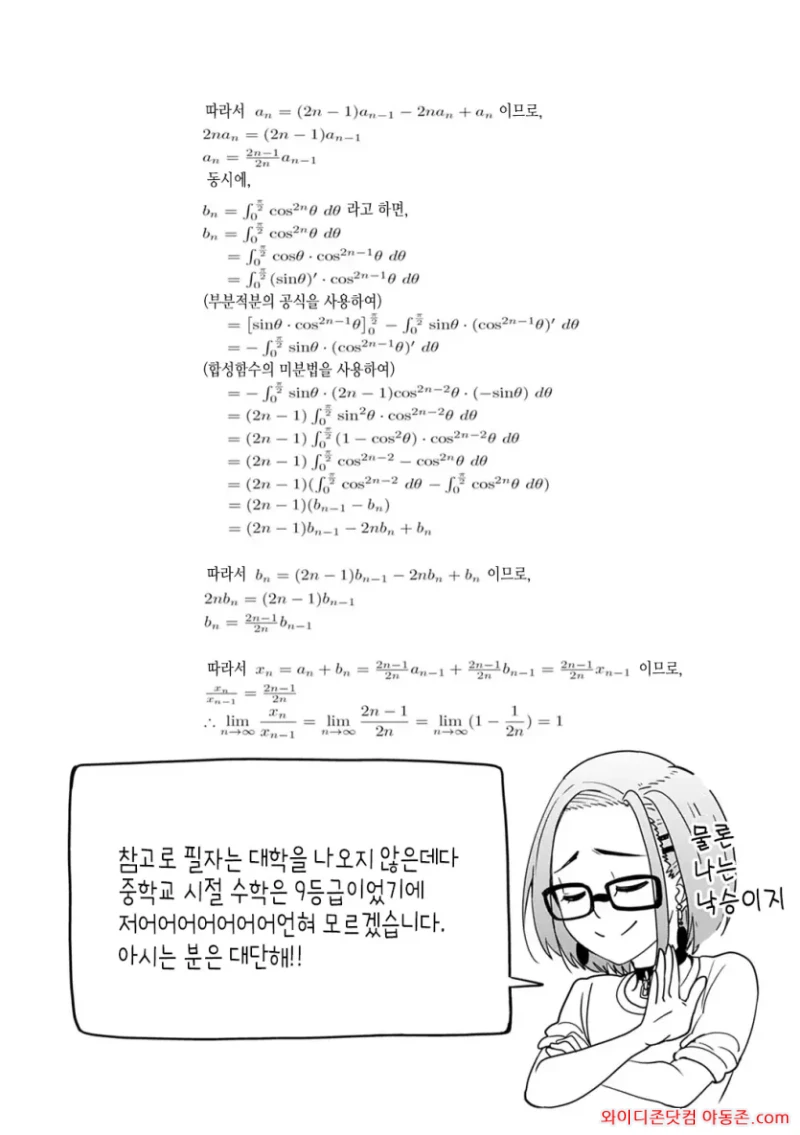 따라서 aₙ = (2n − 1)aₙ₋₁ − 2naₙ + aₙ 이므로,
2naₙ = (2n − 1)aₙ₋₁
aₙ = \frac{2n−1}{2n}aₙ₋₁
동시에,
bₙ = ∫₀^{\frac{π}{2}} cos²ⁿθ dθ 라고 하면,
bₙ = ∫₀^{\frac{π}{2}} cos²ⁿθ dθ
= ∫₀^{\frac{π}{2}} cosθ · cos²ⁿ⁻¹θ dθ
= ∫₀^{\frac{π}{2}} (sinθ)′ · cos²ⁿ⁻¹θ dθ
(부분적분의 공식을 사용하여)
= [sinθ · cos²ⁿ⁻¹θ]₀^{\frac{π}{2}} − ∫₀^{\frac{π}{2}} sinθ · (cos²ⁿ⁻¹θ)′ dθ
= − ∫₀^{\frac{π}{2}} sinθ · (cos²ⁿ⁻¹θ)′ dθ
(합성함수의 미분법을 사용하여)
= − ∫₀^{\frac{π}{2}} sinθ · (2n − 1)cos²ⁿ⁻²θ · (−sinθ) dθ
= (2n − 1) ∫₀^{\frac{π}{2}} sin²θ · cos²ⁿ⁻²θ dθ
= (2n − 1) ∫₀^{\frac{π}{2}} (1 − cos²θ) · cos²ⁿ⁻²θ dθ
= (2n − 1) ∫₀^{\frac{π}{2}} cos²ⁿ⁻² − cos²ⁿθ dθ
= (2n − 1)(∫₀^{\frac{π}{2}} cos²ⁿ⁻² dθ − ∫₀^{\frac{π}{2}} cos²ⁿθ dθ)
= (2n − 1)(bₙ₋₁ − bₙ)
= (2n − 1)bₙ₋₁ − 2nbₙ + bₙ
따라서 bₙ = (2n − 1)bₙ₋₁ − 2nbₙ + bₙ 이므로,
2nbₙ = (2n − 1)bₙ₋₁
bₙ = \frac{2n−1}{2n}bₙ₋₁
따라서 xₙ = aₙ + bₙ = \frac{2n−1}{2n}aₙ₋₁ + \frac{2n−1}{2n}bₙ₋₁ = \frac{2n−1}{2n}xₙ₋₁ 이므로,
\frac{xₙ}{xₙ₋₁} = \frac{2n−1}{2n}
∴ lim_{n→∞} \frac{xₙ}{xₙ₋₁} = lim_{n→∞} \frac{2n − 1}{2n} = lim_{n→∞}(1 − \frac{1}{2n}) = 1
참고로 필자는 대학을 나오지 않은데다
중학교 시절 수학은 9등급이었기에
저어어어어어어어언혀 모르겠습니다.
아시는 분은 대단해!!
물론
나는
낙승이지
와이디존닷컴 아동존.com